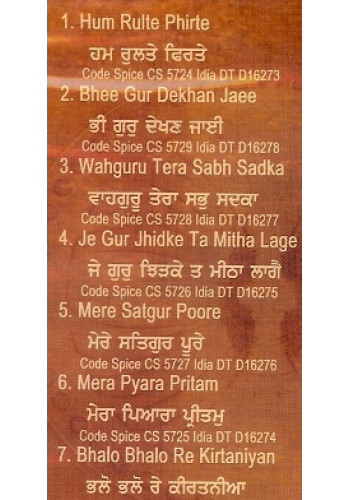 1. Hum Rulte Phirte
ਹਮ ਰੁਲਤੇ ਫਿਰਤੇ
Code Spice CS 5724 Idia DT D16273
2. Bhee Gur Dekhan Jaee
ਭੀ ਗੁਰੁ ਦੇਖਣ ਜਾਈ
Code Spice CS 5729 Idia DT D16278
3. Wahguru Tera Sabh Sadka
ਵਾਹਗੁਰੂ ਤੇਰਾ ਸਭੁ ਸਦਕਾ
Code Spice CS 5728 Idia DT D16277
4. Je Gur Jhidke Ta Mitha Lage
ਜੇ ਗੁਰੁ ਝਿੜਕੇ ਤ ਮੀਠਾ ਲਾਗੈ
Code Spice CS 5726 Idia DT D16275
5. Mere Satgur Poore
ਮੇਰੇ ਸਤਿਗੁਰ ਪੂਰੇ
Code Spice CS 5727 Idia DT D16276
6. Mera Pyara Pritam
ਮੇਰਾ ਪਿਆਰਾ ਪ੍ਰੀਤਮੁ
Code Spice CS 5725 Idia DT D16274
7. Bhalo Bhalo Re Kirtaniyan
ਭਲੋ ਭਲੋ ਰੇ ਕੀਰਤਨੀਆ